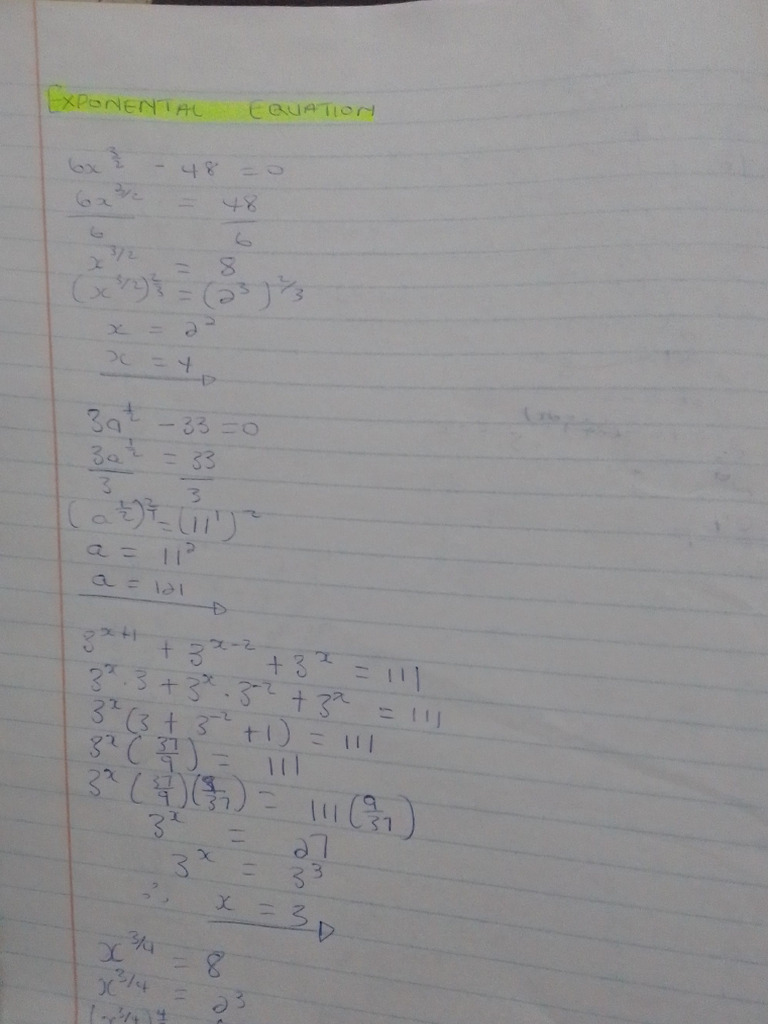 EXPONENTAL EQUATION
6x^{3/2} - 48 = 0
6x^{3/2}/6 = 48/6
x^{3/2} = 8
(x^{3/2})^{2/3} = (2^3)^{2/3}
x = 2^2
x = 4
3a^{1/2} - 33 = 0
3a^{1/2}/3 = 33/3
(a^{1/2})^{2/1} = (11^1)^2
a = 11^2
a = 121
3^{x+1} + 3^{x-2} + 3^x = 111
3^x . 3 + 3^x . 3^{-2} + 3^x = 111
3^x (3 + 3^{-2} + 1) = 111
3^x (37/9) = 111
3^x (37/9)(9/37) = 111 (9/37)
3^x = 27
3^x = 3^3
∴ x = 3
x^{3/4} = 8
x^{3/4} = 2^3